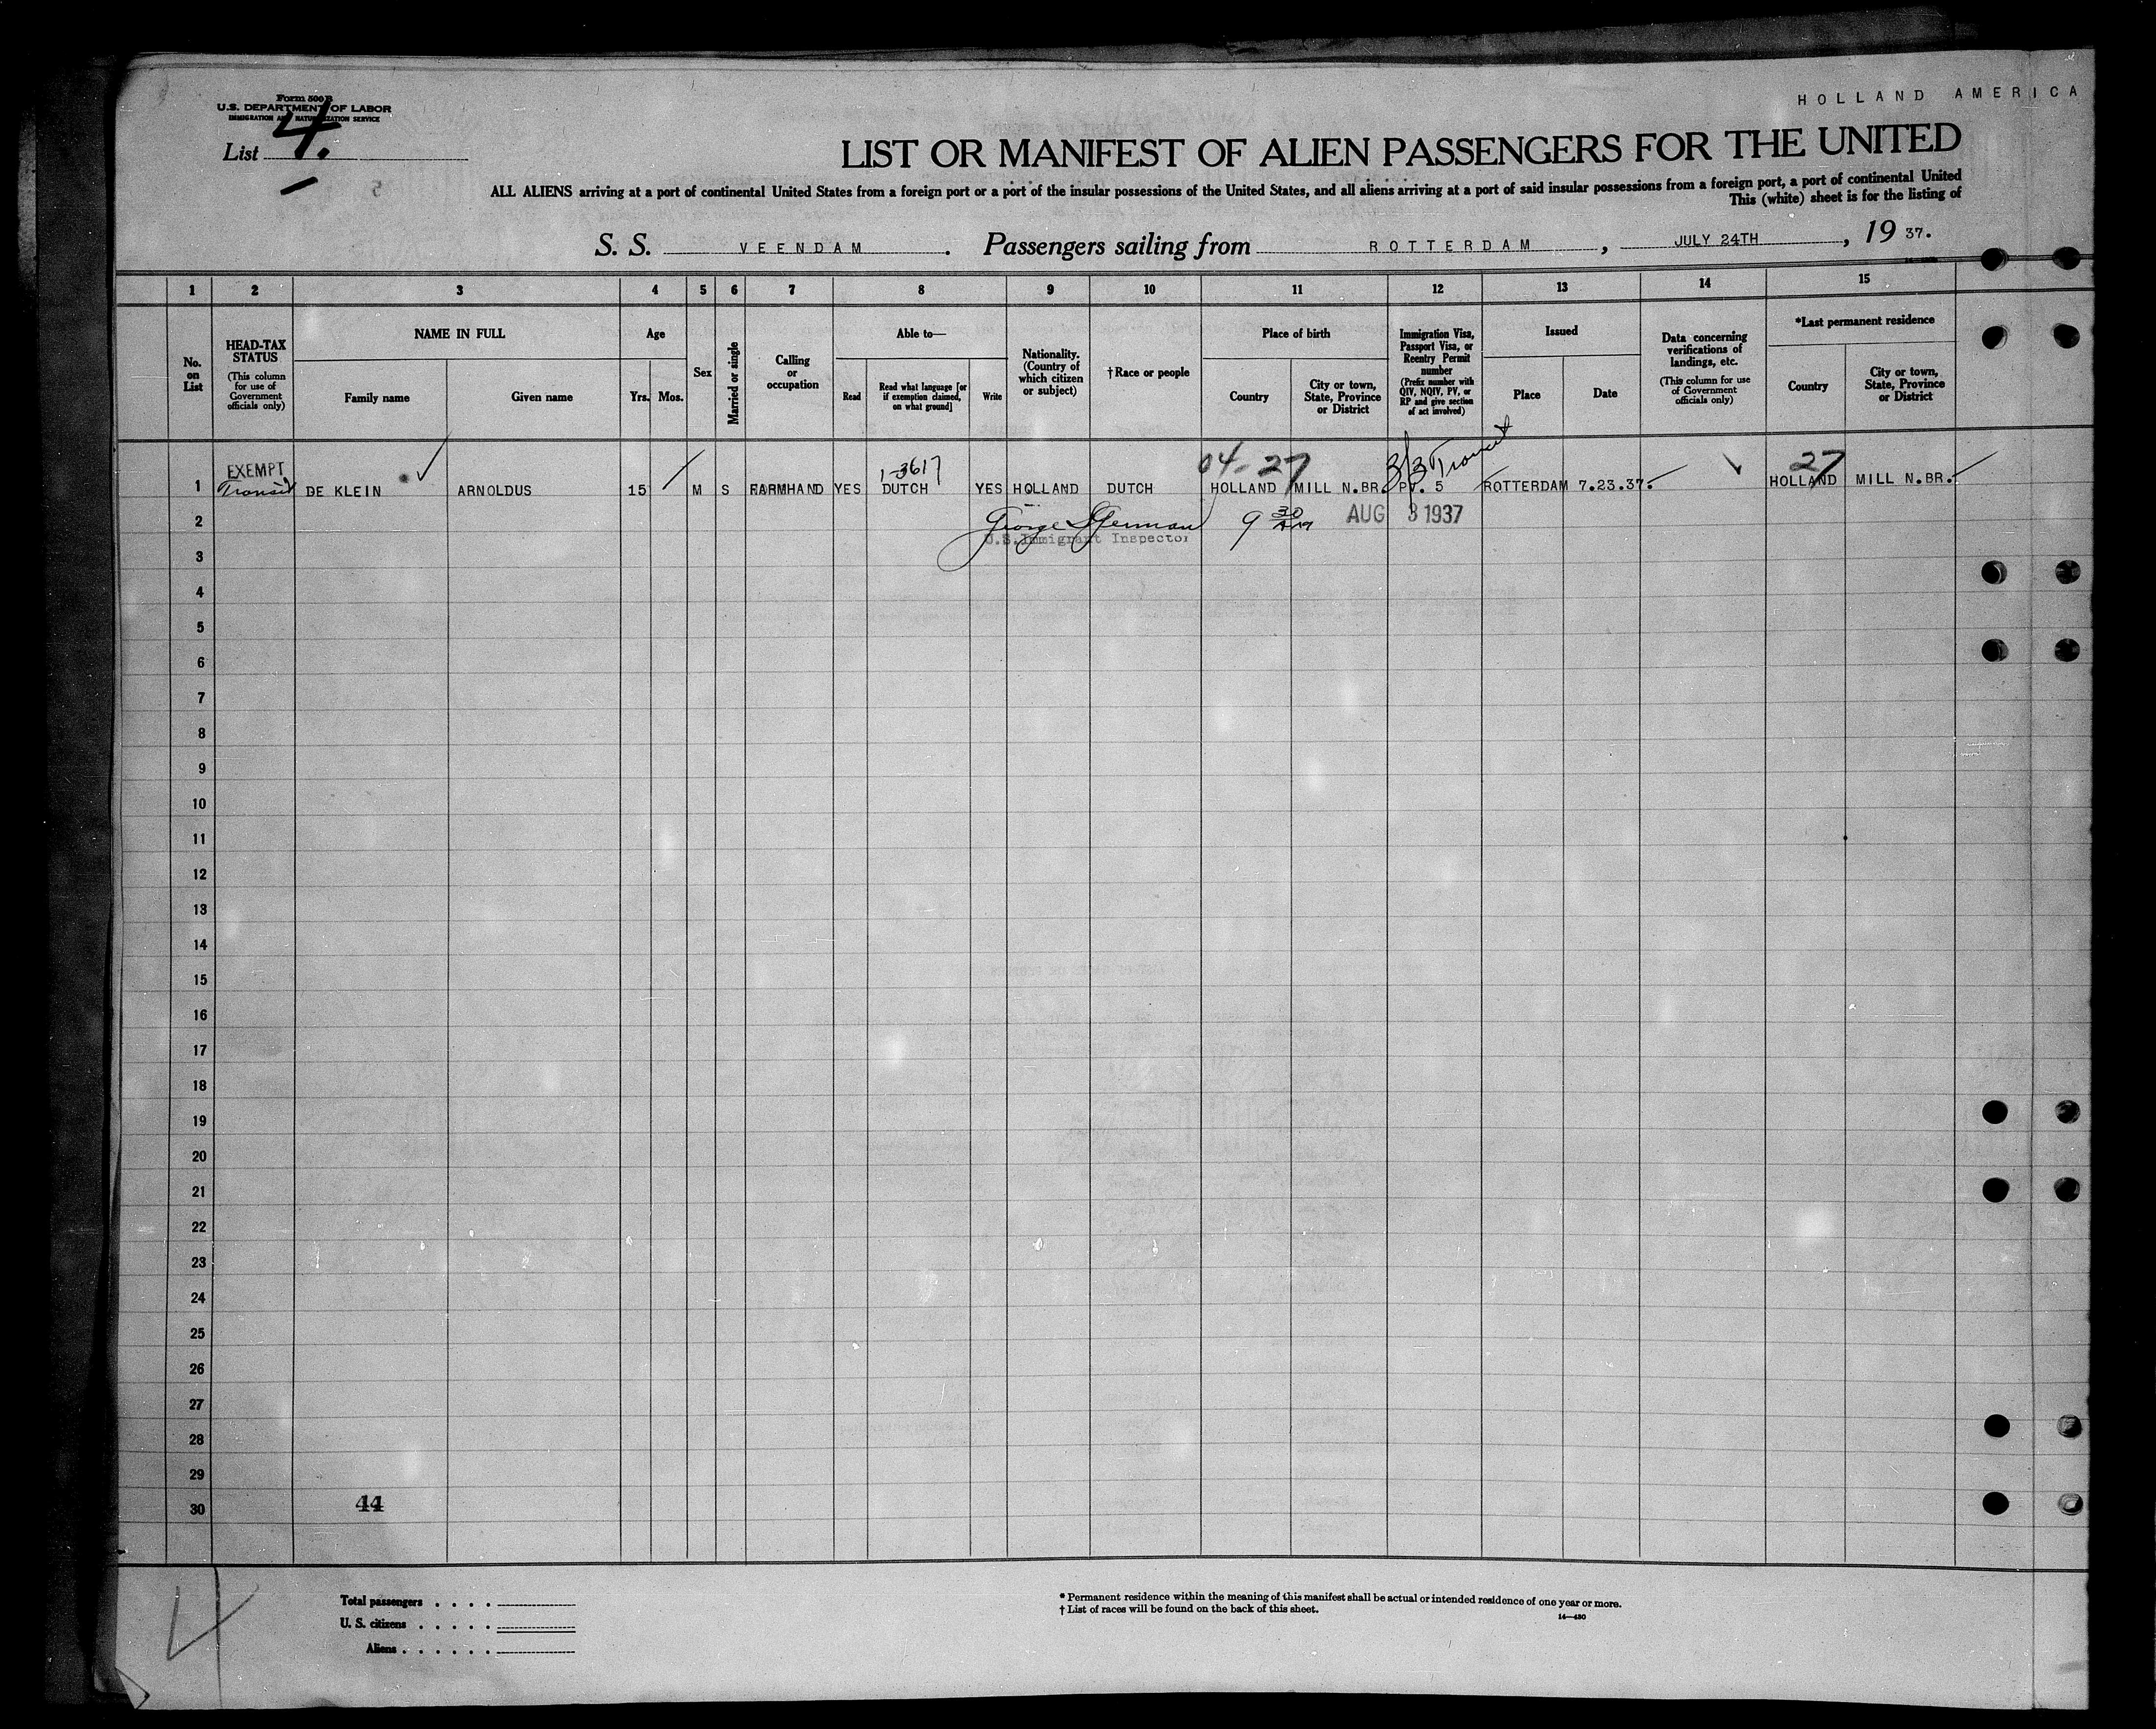 HOLLAND AMERICA
Form 500 B
U.S. DEPARTMENT OF LABOR
IMMIGRATION AND NATURALIZATION SERVICE
List 4.
LIST OR MANIFEST OF ALIEN PASSENGERS FOR THE UNITED
ALL ALIENS arriving at a port of continental United States from a foreign port or a port of the insular possessions of the United States, and all aliens arriving at a port of said insular possessions from a foreign port, a port of continental United
This (white) sheet is for the listing of
S. S. VEENDAM. Passengers sailing from ROTTERDAM, JULY 24TH, 1937.
1 2 3 4 5 6 7 8 9 10 11 12 13 14 15
No. on List
HEAD-TAX STATUS
(This column for use of Government officials only)
NAME IN FULL
Family name
Given name
Age
Yrs. Mos.
Sex
Married or single
Calling or occupation
Able to—
Read
Read what language [or if exemption claimed, on what ground]
Write
Nationality. (Country of which citizen or subject)
†Race or people
Place of birth
Country
City or town, State, Province or District
Immigration Visa, Passport Visa, or Reentry Permit number
(Prefix number with QIV, NQIV, PV, or RP and give section of act involved)
Issued
Place
Date
Data concerning verifications of landings, etc.
(This column for use of Government officials only)
*Last permanent residence
Country
City or town, State, Province or District
EXEMPT 1-3617 04-27 3/3 Transit 27
1 Transit DE KLEIN ARNOLDUS 15 M S FARMHAND YES DUTCH YES HOLLAND DUTCH HOLLAND MILL N.BR. PV. 5 ROTTERDAM 7.23.37. HOLLAND MILL N.BR.
2 George 9 30 AM AUG 3 1937
U.S. Immigrant Inspector
3
4
5
6
7
8
9
10
11
12
13
14
15
16
17
18
19
20
21
22
23
24
25
26
27
28
29
30 44
4
Total passengers . . . .
U. S. citizens . . . . .
Aliens . . . . . .
* Permanent residence within the meaning of this manifest shall be actual or intended residence of one year or more.
† List of races will be found on the back of this sheet.
14—430